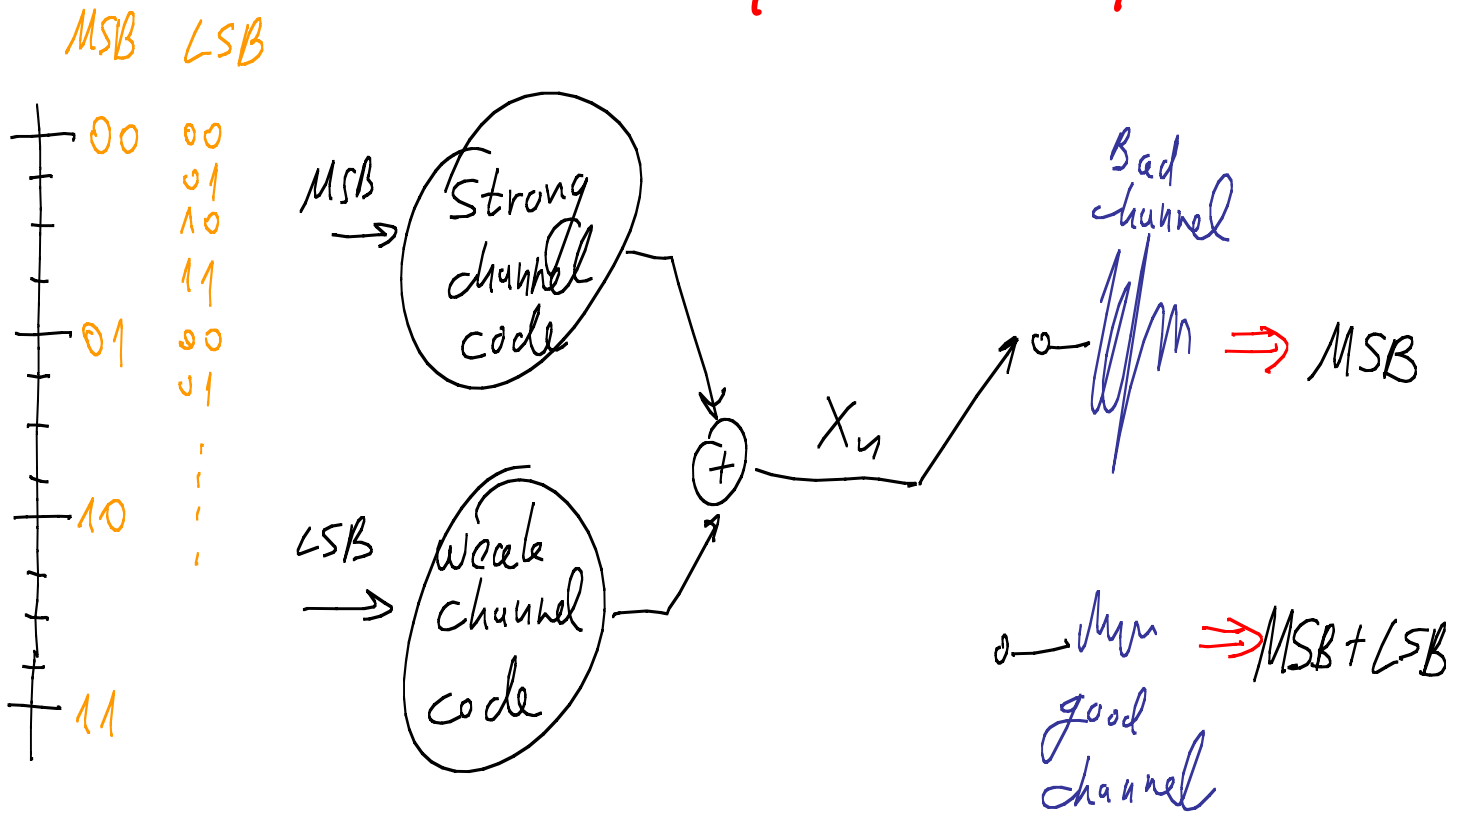 MSB LSB
00 00
01
10
11
01 00
01
10
11
MSB
Strong
channel
code
LSB
Weak
channel
code
+
Xn
Bad
channel
MSB
MSB + LSB
good
channel